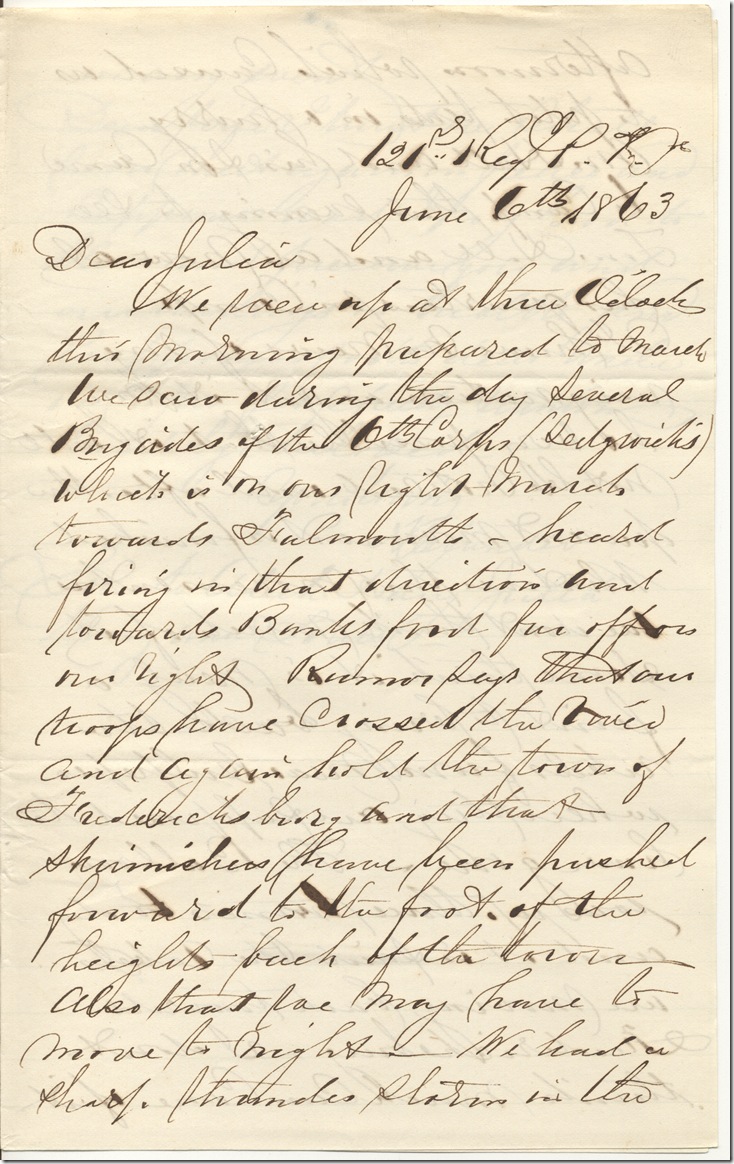 121st Reg P. V.
June 6th 1863
Dear Julia
We were up at three O'clock
this Morning prepared to March
We saw during the day several
Brigades of the 6th Corps (Sedgwick's)
which is on our right March
towards Falmouth - heard
firing in that direction and
towards Banks ford far off on
our right Rumor says that our
troops have Crossed the River
and again hold the town of
Fredericksburg and that
skirmishers have been pushed
forward to the foot of the
heights back of the town
Also that we May have to
move to night - We had a
sharp thunder storm in the